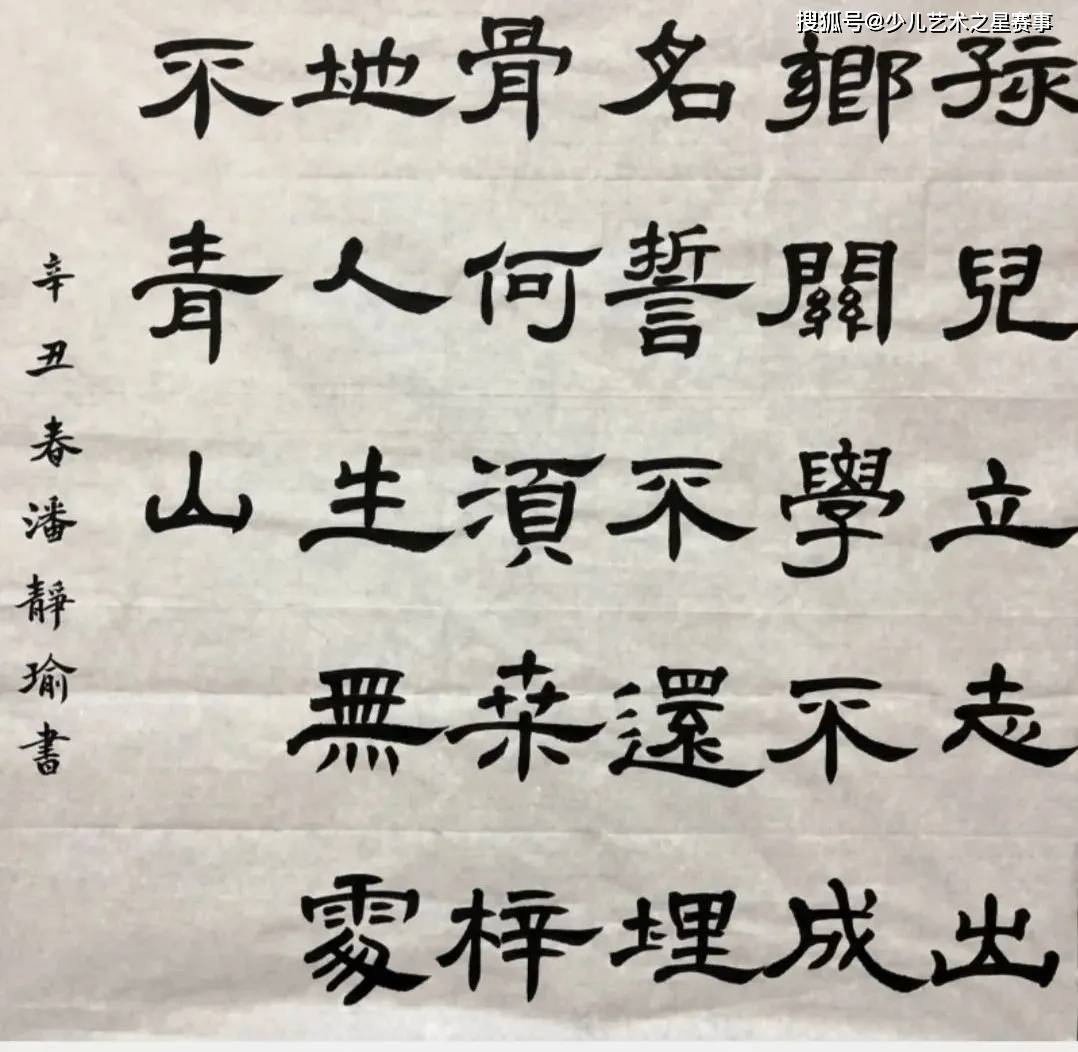 搜狐号@少儿艺术之星赛事
孩兒立志出
鄉關學不成
名誓不還埋
骨何湏桒梓
地人生無處
不青山
辛丑春潘靜瑜書